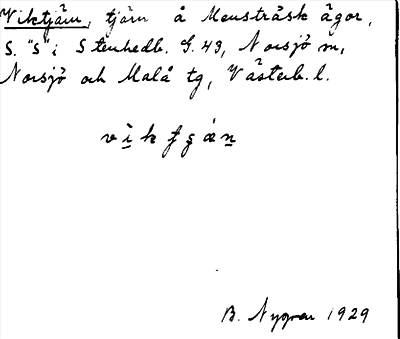 Viktjärn, tjärn å Mensträsk ägor,
S. "S" i Stenhedb. G. 43, Norsjö sn,
Norsjö och Malå tg, Västerb. l.
B. Nygren 1929